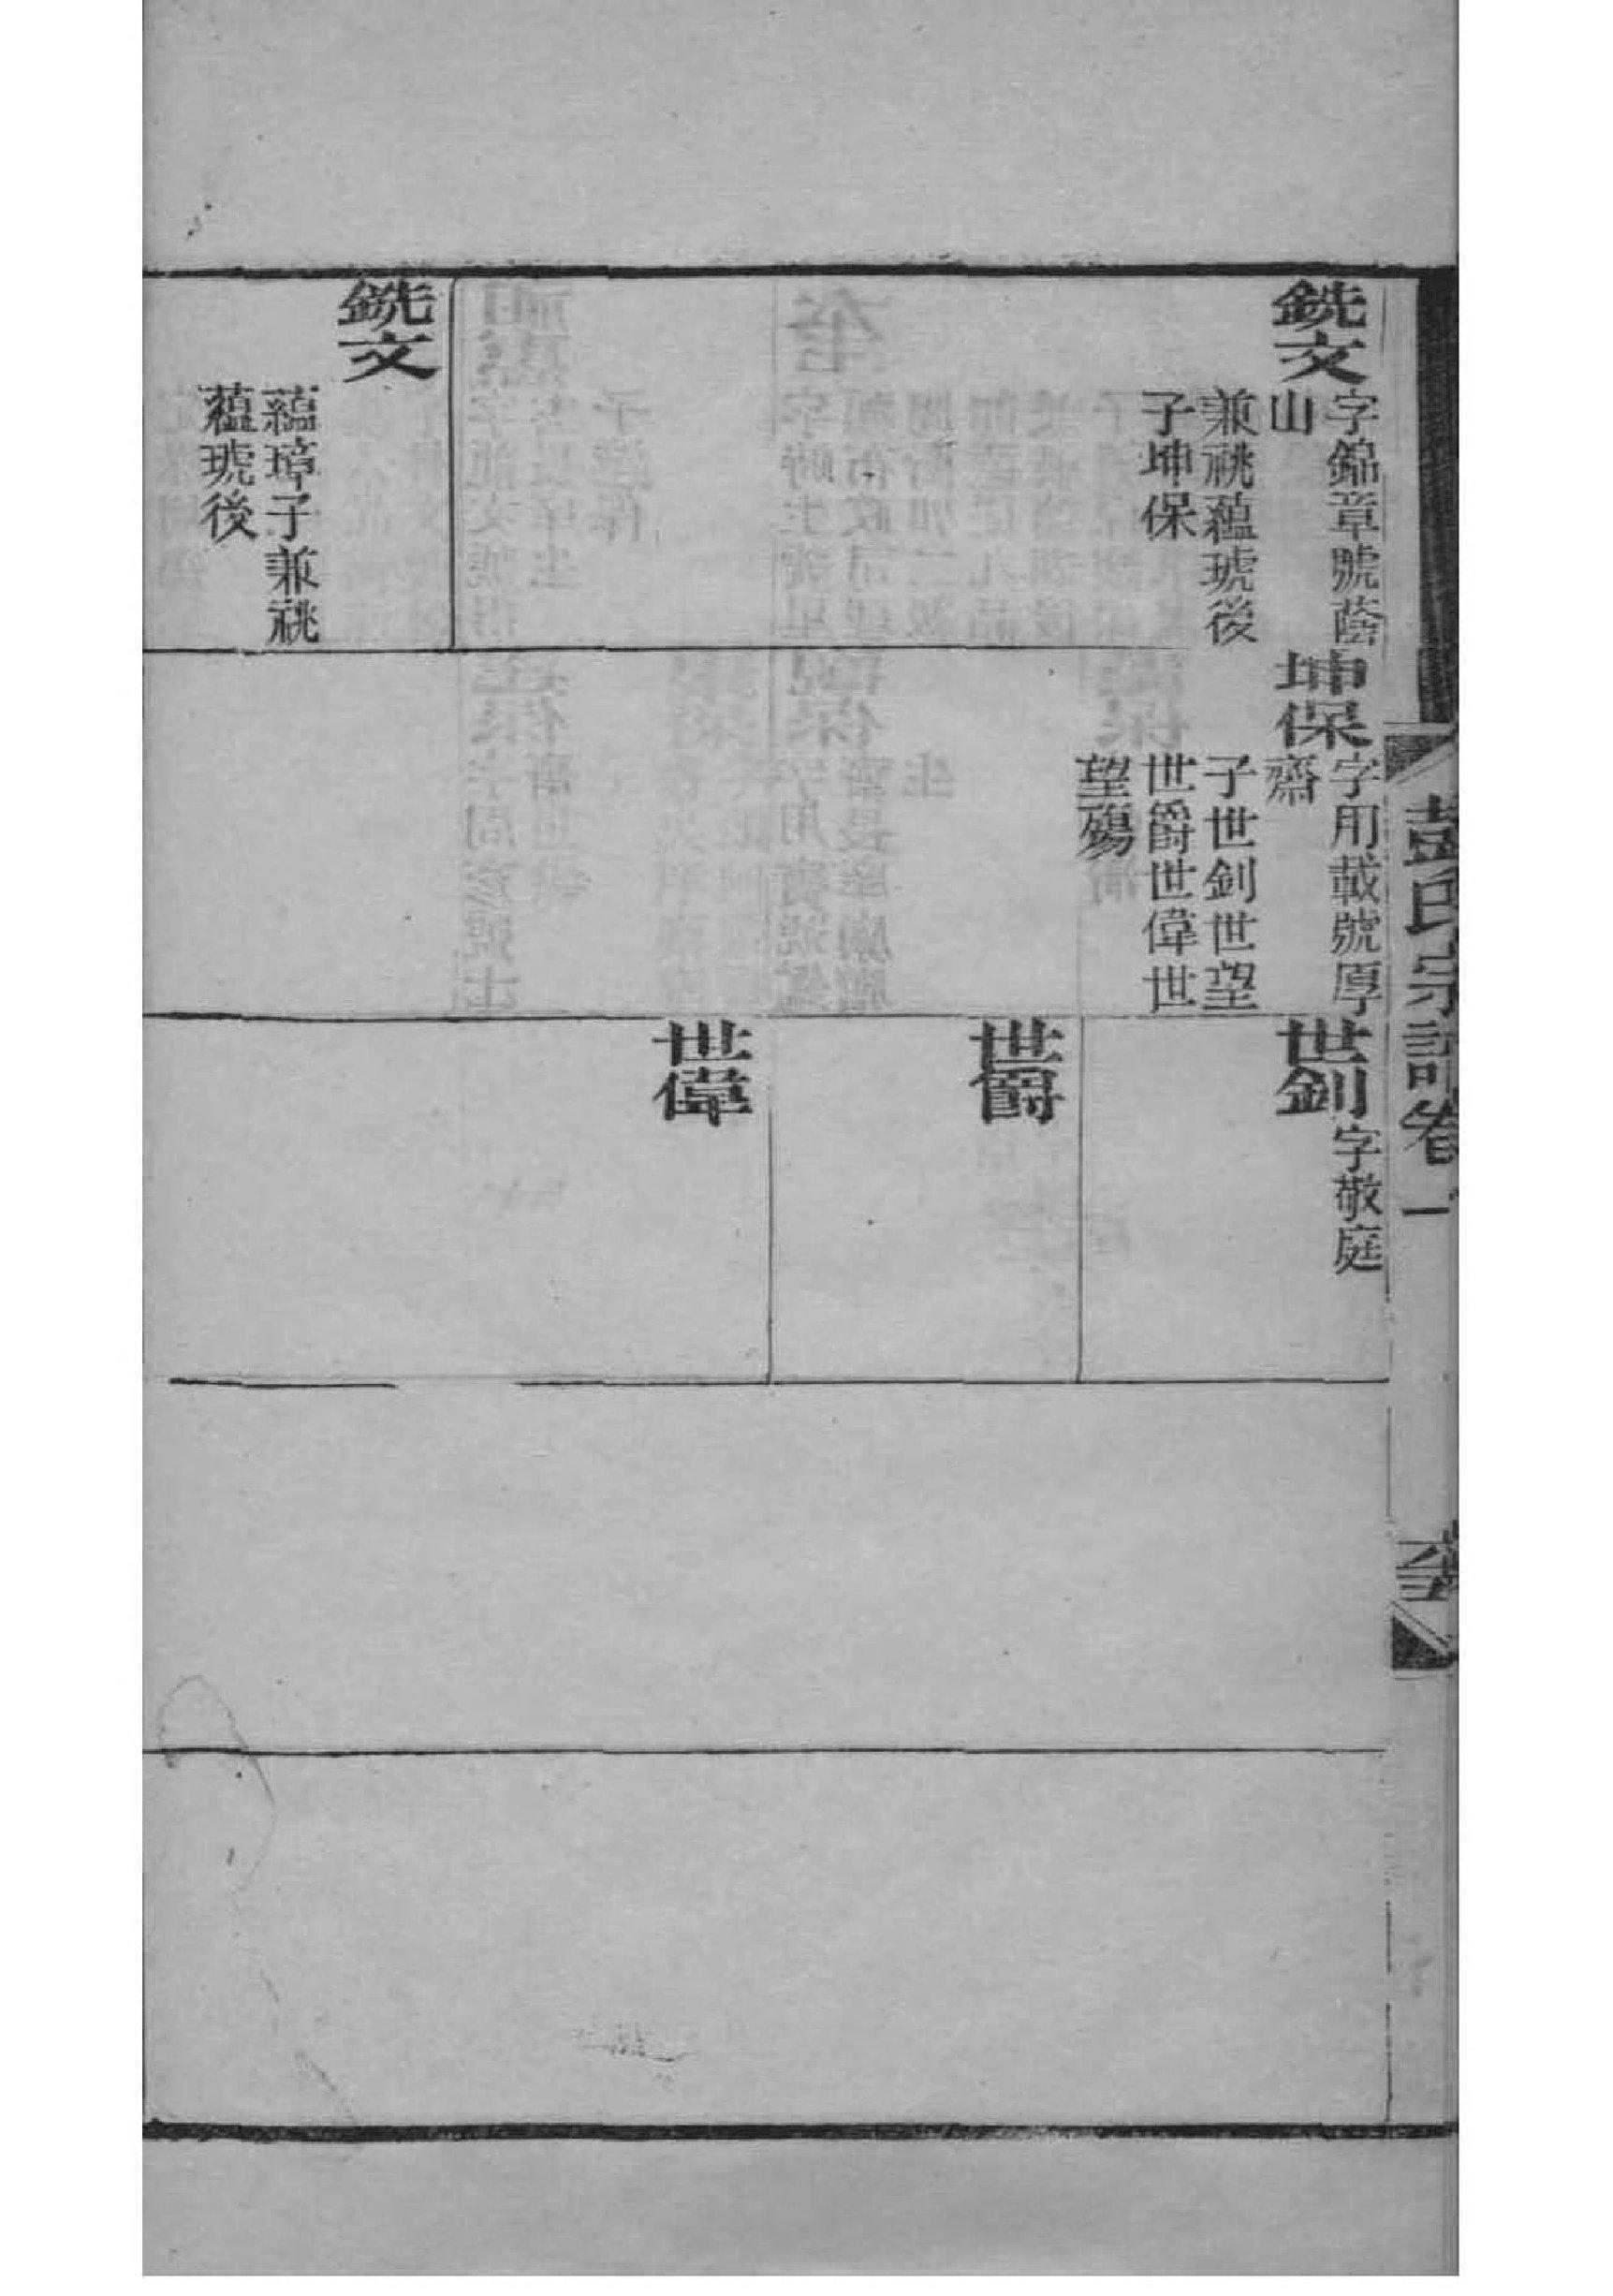 彭氏宗譜卷一
銑文
字錦章號蔭
山
兼祧蘊琥後
子坤保
銑文
蘊璋子兼祧
蘊琥後
坤保
字用載號厚
齋
子世釗世望
世爵世偉世
望殤
世釗
字敬庭
世爵
世偉